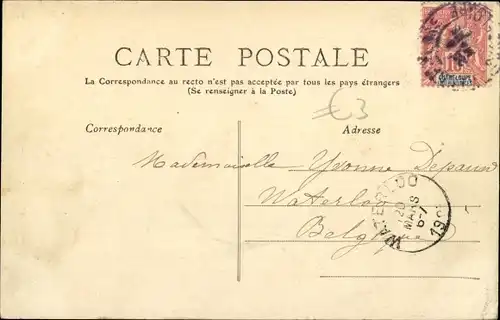 CARTE POSTALE
La Correspondance au recto n'est pas acceptée par tous les pays étrangers
(Se renseigner à la Poste)
€3
Correspondance
Adresse
Mademoiselle Yvonne Depauw
Waterloo
Belgique
WATERLOO
20
MARS
6-7
10
GUADELOUPE